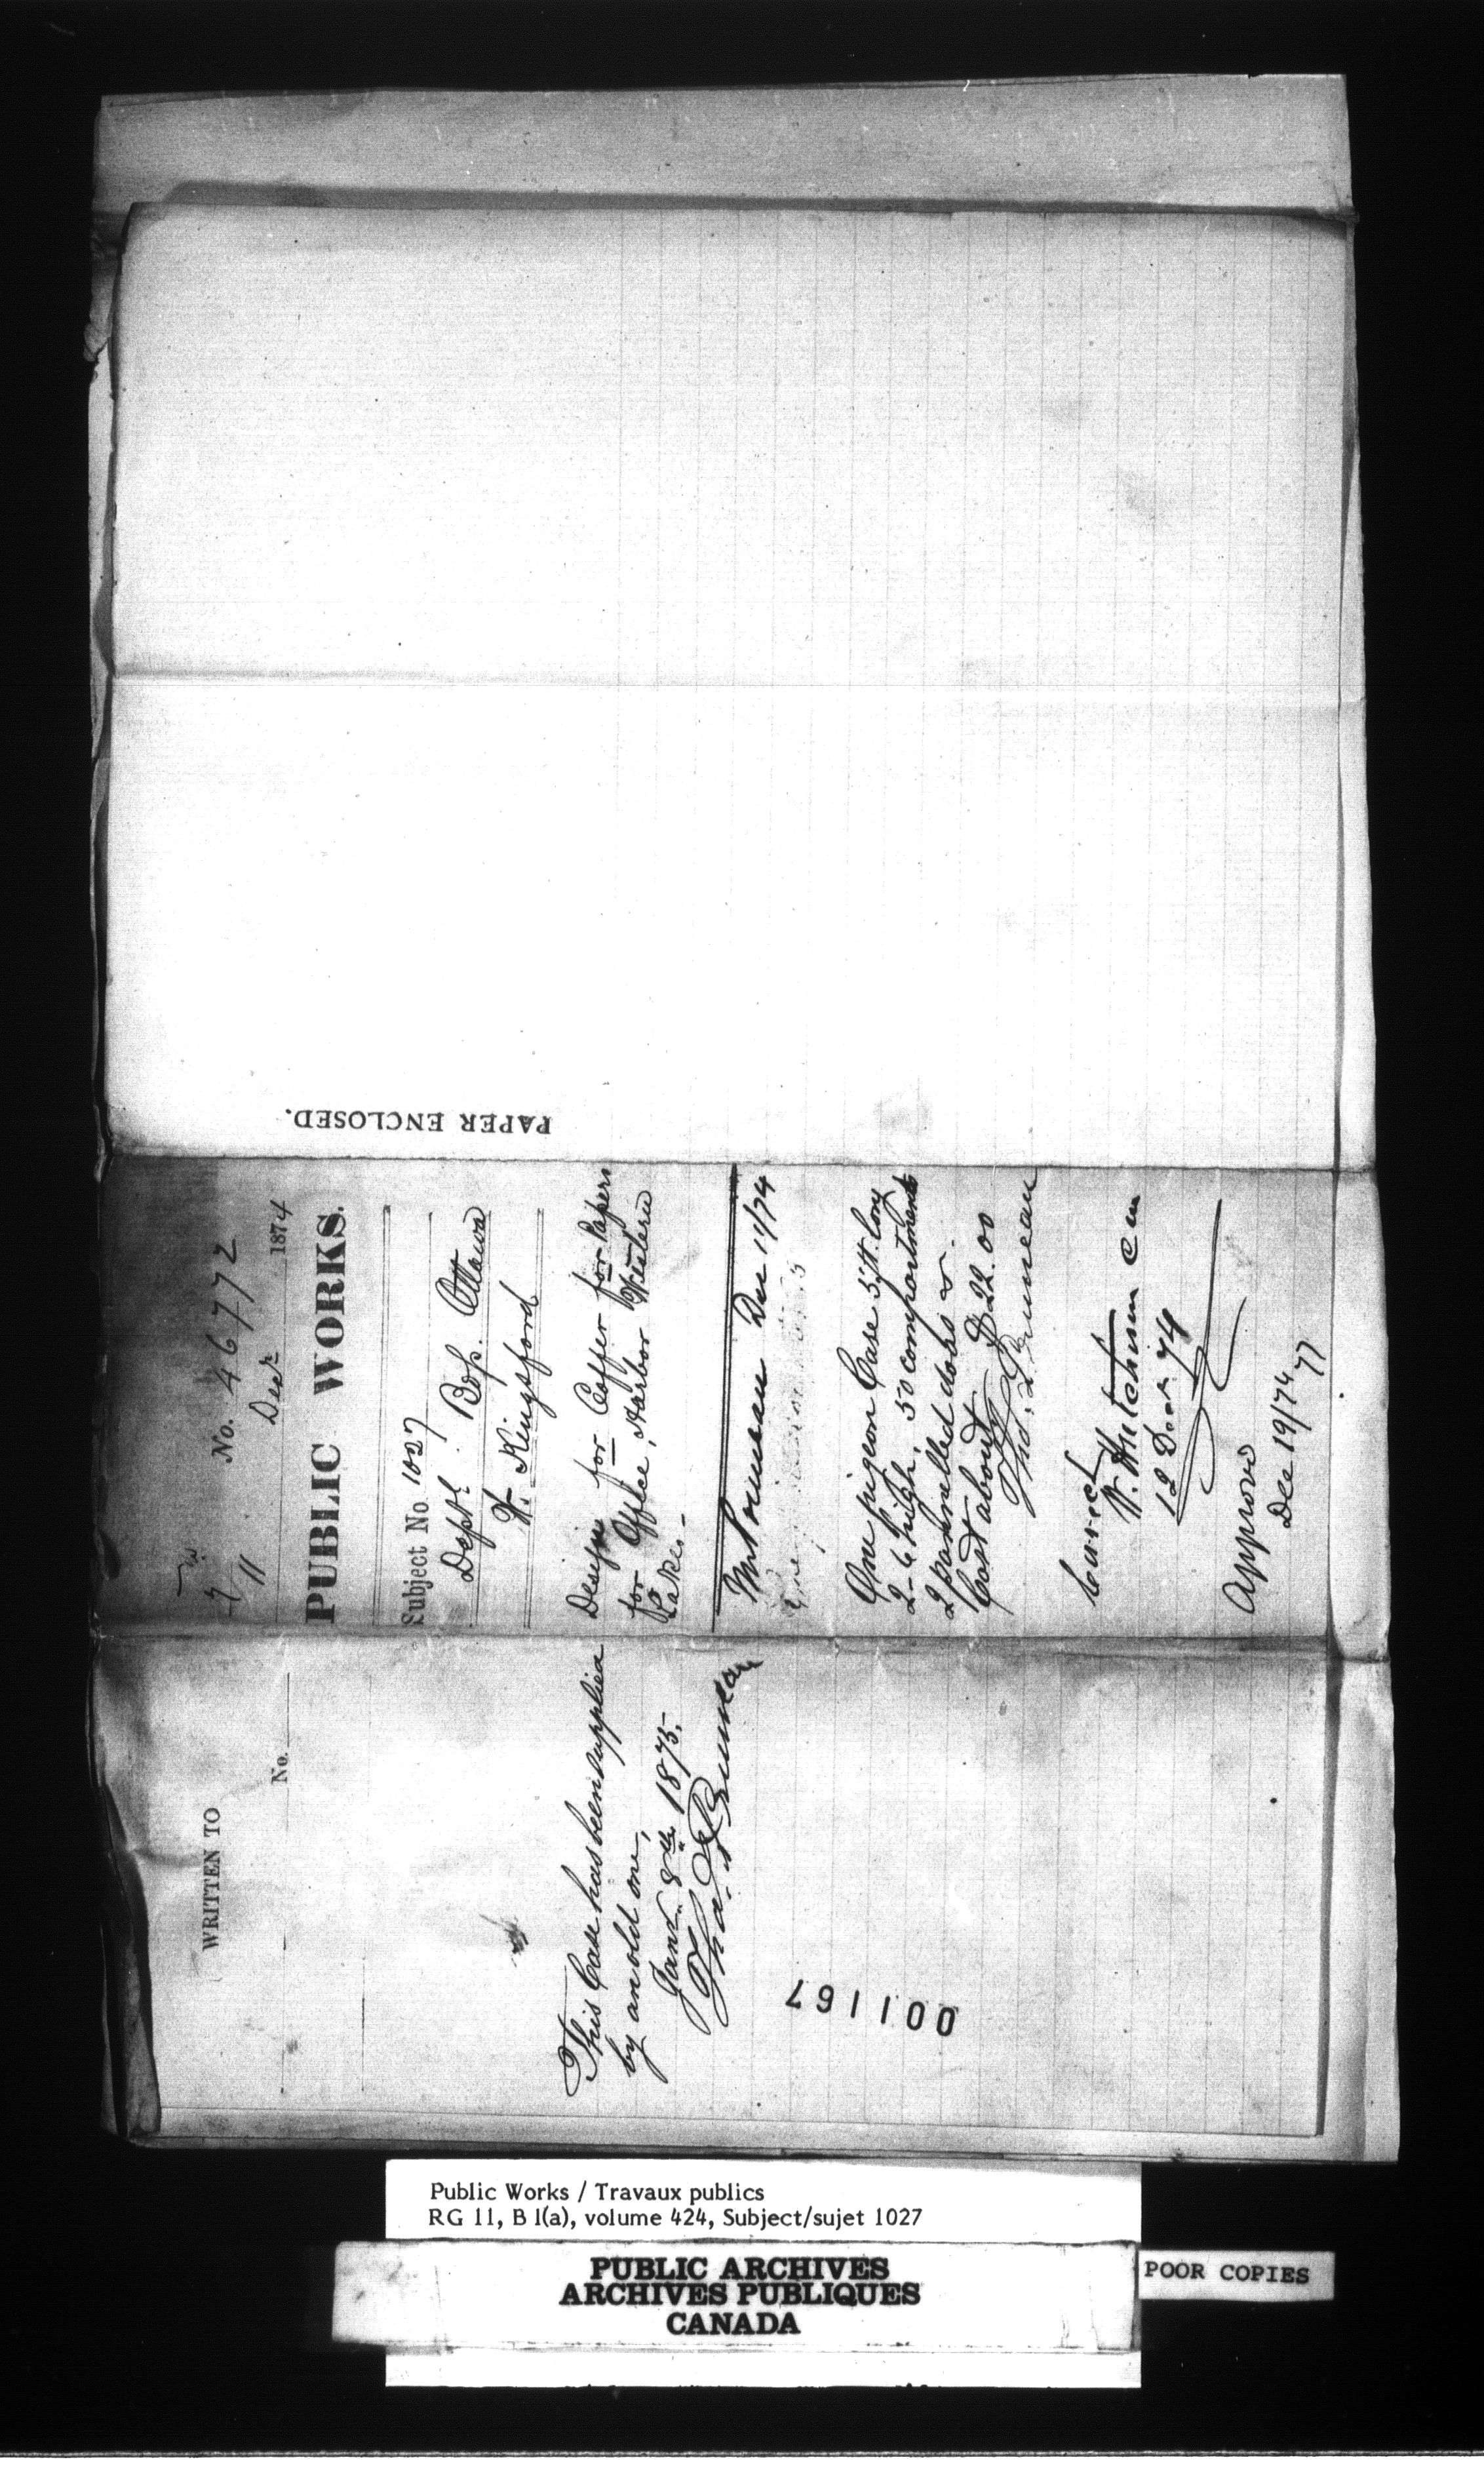 WRITTEN TO
No.
This Case has been supplied
by an old one,
Janr. 8th 1875.
001167
No. 46772
11 Decr 1874
PUBLIC WORKS.
Subject No 1027
Deptl. Bgs. Ottawa
W. Kingsford
Design for Coffer for Papers
for Office, Harbor Western
Lakes.
Dec 11/74
One pigeon Case 5 ft. long
2-6 high. 50 compartments
2 pannelled doors &
Cost about $22.00
Correct
W. Hutchison
12 Decr 74
Approved
Dec 19/74
PAPER ENCLOSED.
Public Works / Travaux publics
RG 11, B 1(a), volume 424, Subject/sujet 1027
PUBLIC ARCHIVES
ARCHIVES PUBLIQUES
CANADA
POOR COPIES